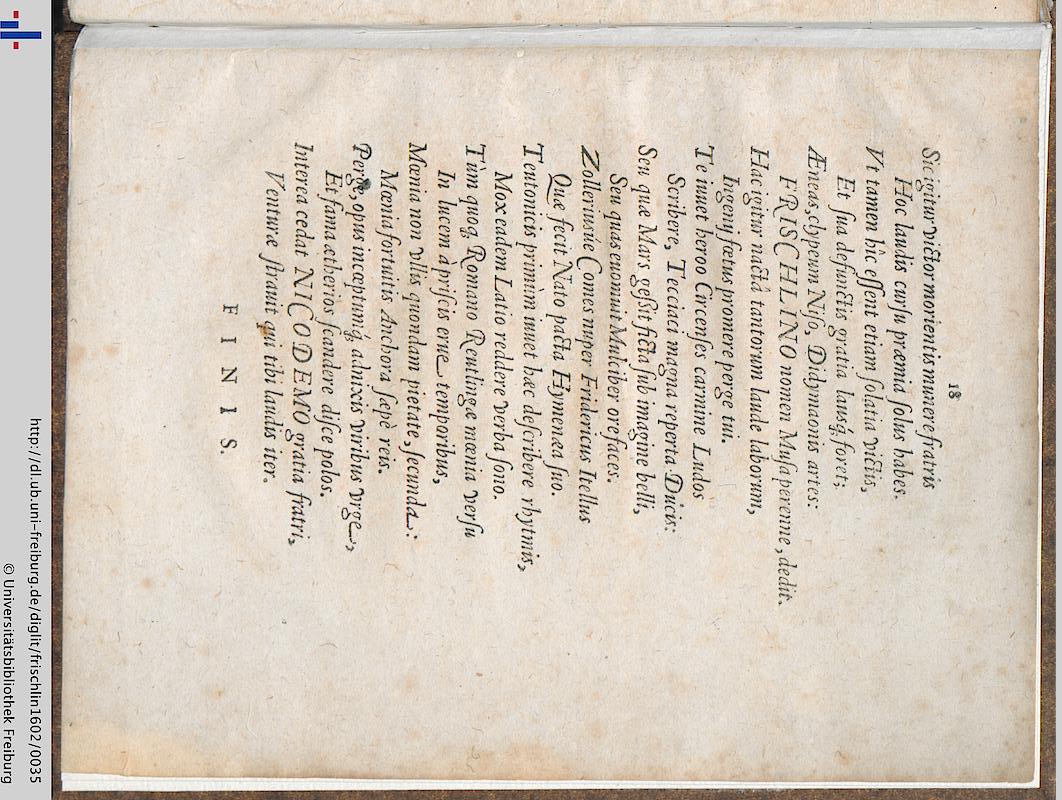 18
Sic igitur victor morientis munere fratris
Hoc laudis cursu præmia solus habes.
Vt tamen hîc essent etiam solatia victis,
Et sua defunctis gratia lausq́; foret;
Æneas, clypeum Niso, Didymaonis artes:
FRISCHLINO nomen Musa perenne, dedit.
Hac igitur nactâ tantorum laude laborum,
Ingenij fœtus promere perge tui.
Te iuuet heroo Circenses carmine Ludos
Scribere, Tecciaci magna reperta Ducis:
Seu quæ Mars geßit ficta sub imagine belli,
Seu quas euomuit Mulciber ore faces.
Zolleriusúe Comes nuper Fridericus Itellus
Quæ fecit Nato pacta Hymenæa suo.
Teutonicis primùm iuuet hæc describere rhytmis,
Mox eadem Latio reddere verba sono.
Tùm quoq; Romano Reutlingæ mœnia versu
In lucem à priscis erue temporibus,
Mœnia non vllis quondam pietate, secunda:
Mœnia fortuitis Anchora sæpè reis.
Perge, opus inceptumq́; adnixis viribus vrge,
Et fama ætherios scandere disce polos.
Interea cedat NICODEMO gratia fratri,
Venturæ strauit qui tibi laudis iter.
F I N I S.
http://dl.ub.uni-freiburg.de/diglit/frischlin1602/0035
© Universitätsbibliothek Freiburg